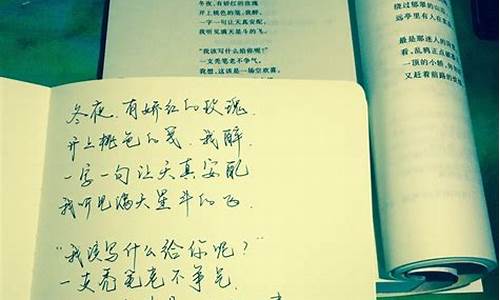 冬夜，有娇红的玫瑰
开上桃色的笺，我醉，
一字一句让天真安配，
我听见满天星斗的飞。
“我该写什么给你呢？”
一支秃笔老不争气，
我想，这该是一场空欢喜。
绕过郁翠的山
远亭里有人在
最是那迷人的
看，乱鸦正点
一顶的小轿，
又赶着前路的
冬夜，有娇红的玫瑰，
开上桃色的笺，我醉，
一字一句让天真安配
我听见满天星斗的飞.
“我该写什么给你呢？”
一支秃笔老不争气.